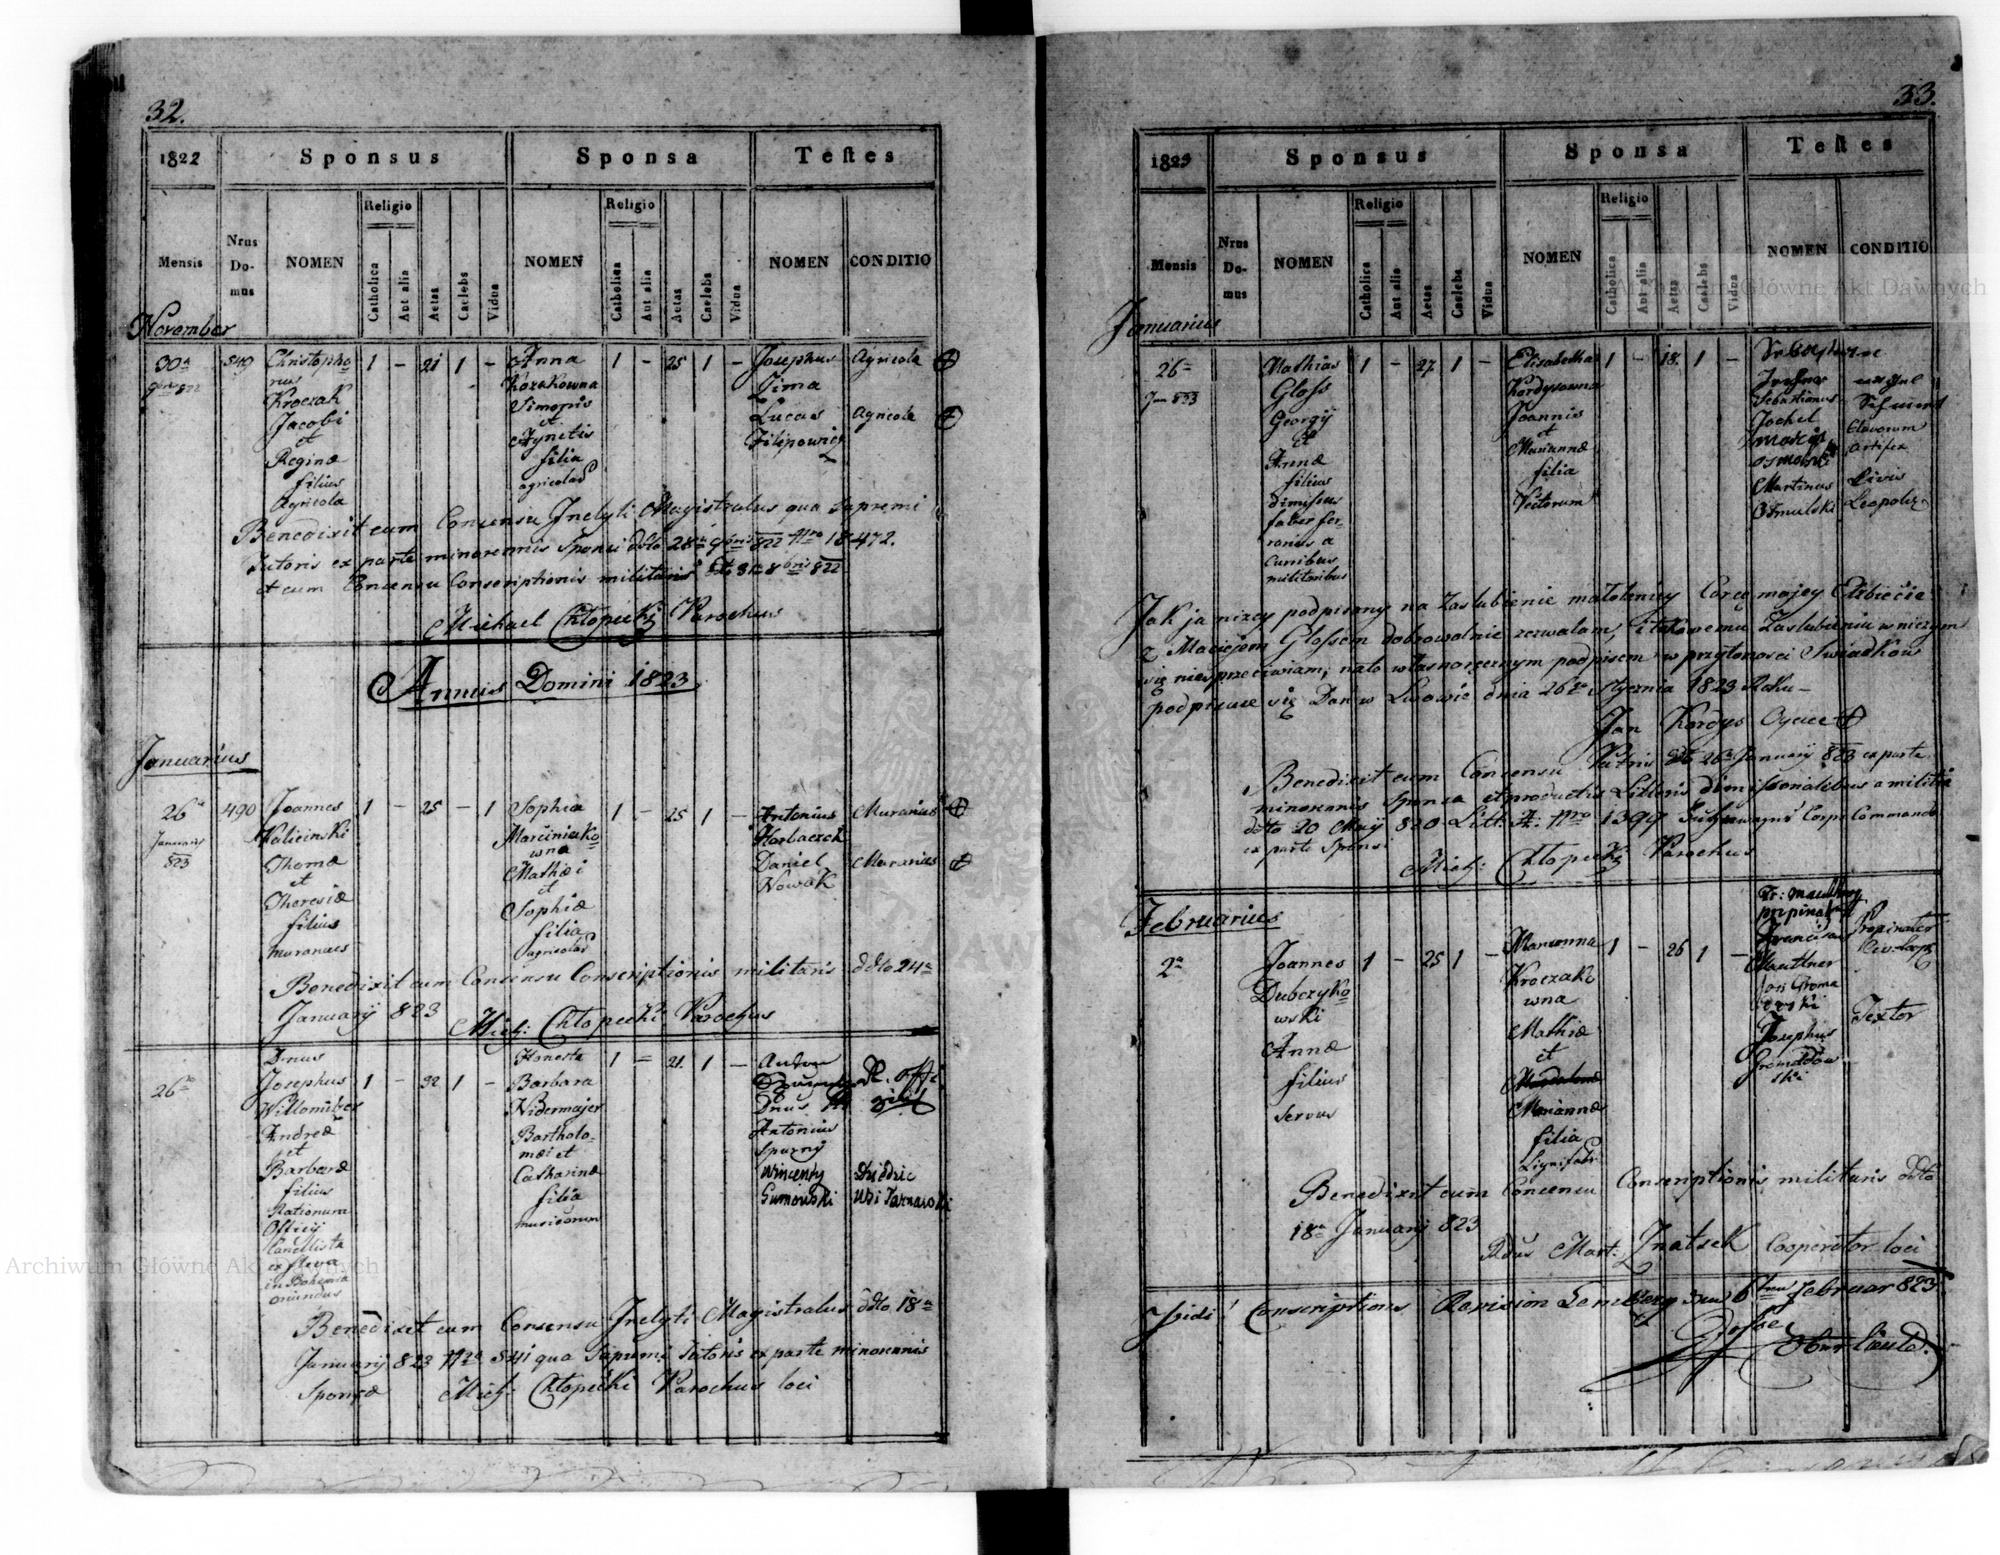 32.
1822
Sponsus
Sponsa
Teſtes
Mensis
Nrus Do-mus
NOMEN
Religio
Catholica
Aut alia
Aetas
Caelebs
Vidua
NOMEN
Religio
Catholica
Aut alia
Aetas
Caelebs
Vidua
NOMEN
CONDITIO
November
30a
549
Christopho
rus
Kroczak
Jacobi
et
Reginæ
filius
Agricola
1 – 21 1 –
Anna
Kozakowna
Simonis
et
Agnetis
filia
agricolae
1 – 25 1 –
Josephus
Zima
Lucas
Filipowicz
Agricola
Agricola
Benedixit cum Consensu Inclyti Magistratus qua Supremi
Tutoris ex parte minorennis Sponsi ddto 28a 9bris 822 Nro 18472.
et cum Consensu Conscriptionis militaris
Michael Chłopecki Parochus
Annus Domini 1823
Januarius
26a
Januarij
823
490
Joannes
Kaliciński
Thomæ
et
Theresiæ
filius
murarius
1 – 25 – 1
Sophia
Marciniako
wna
Mathæi
et
Sophiæ
filia
agricolae
1 – 25 1 –
Antonius
Horbaczek
Daniel
Nowak
Murarius
Murarius
Benedixit cum Consensu Conscriptionis militaris ddto 24a
Januarij 823
Mich: Chłopecki Parochus
26a
Dnus
Josephus
Willomitzer
Andreæ
et
Barbaræ
filius
Rationum
Officij
Cancellista
in Bohemia
oriundus
1 – 32 1 –
Honesta
Barbara
Nidermajer
Bartholo-
mæi et
Catharinæ
filia
1 – 21 1 –
Anton
Dnus
Antonius
Spurny
Wincenty
Gumowski
Benedixit cum Consensu Inclyti Magistratus ddto 18a
Januarij 823 Nro 841 qua Supremi Tutoris ex parte minorennis
Sponsæ
Mich: Chłopecki Parochus loci
33.
1823
Sponsus
Sponsa
Teſtes
Mensis
Nrus Do-mus
NOMEN
Religio
Catholica
Aut alia
Aetas
Caelebs
Vidua
NOMEN
Religio
Catholica
Aut alia
Aetas
Caelebs
Vidua
NOMEN
CONDITIO
Januarius
26a
Jan 823
Mathias
Gloſs
Georgij
et
Annæ
filius
dimissus
faber fer
rarius a
Curribus
militaribus
1 – 27 1 –
Elisabetha
Kordysowna
Joannis
et
Mariannæ
filia
Vectorum
1 – 18 1 –
Sebastianus
Jockel
Marcin
Osmolski
Martinus
Osmulski
Clavorum
artifex
Civis
Leopolis
Jak ja niżey podpisany na Zaslubienie małoletniey Corcy mojey Elżbiecie
z Maciejem Glossem dobrowolnie zezwalam, i takowemu Zaslubieniu w niczym
się niesprzeciwiam, na to własnoręcznym podpisem w przytomności Swiadków
podpisuie się Dan w Lwowie dnia 26go Stycznia 1823 Roku –
Jan Kordys Oyciec
Benedixit cum Consensu Patris ddto 26a Januarij 823 ex parte
minorennis Sponsæ et productis Litteris dimissionalibus a militia
ddto 20 Maij 820 Litt. A. Nro 1399 Fuhrwesens Corps Commando
ex parte Sponsi
Mich: Chłopecki Parochus
Februarius
2a
Joannes
Dubczyko
wski
Annæ
filius
servus
1 – 25 1 –
Marianna
Kroczako
wna
Mathiæ
et
Mariannæ
filia
Lignifabri
1 – 26 1 –
Franciscus
Mauttner
Jan Groma
dowski
Josephus
Gromadow
ski
Propinator
Textor
Benedixit cum Consensu Conscriptionis militaris ddto
18a Januarij 823
Rdus Mart: Jnatsek Cooperator loci
Vidi! Conscriptions Revision Lemberg den 6ten Februar 823.
Archiwum Główne Akt Dawnych
Archiwum Główne Akt Dawnych